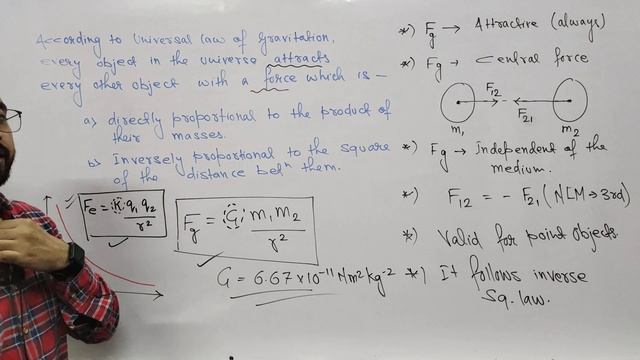 According to Universal law of Gravitation,
every object in the universe attracts
every other object with a force which is –
a) directly proportional to the product of
their masses.
b) Inversely proportional to the square
of the distance betⁿ them.
Fe = K q1 q2 / r²
Fg = G m1 m2 / r²
G = 6.67 × 10⁻¹¹ Nm² kg⁻²
*) Fg → Attractive (always)
*) Fg → Central force
F12
F21
m1 m2
*) Fg → Independent of the
medium.
*) F12 = – F21 (NLM → 3rd)
*) Valid for point objects
*) It follows inverse
sq. law.